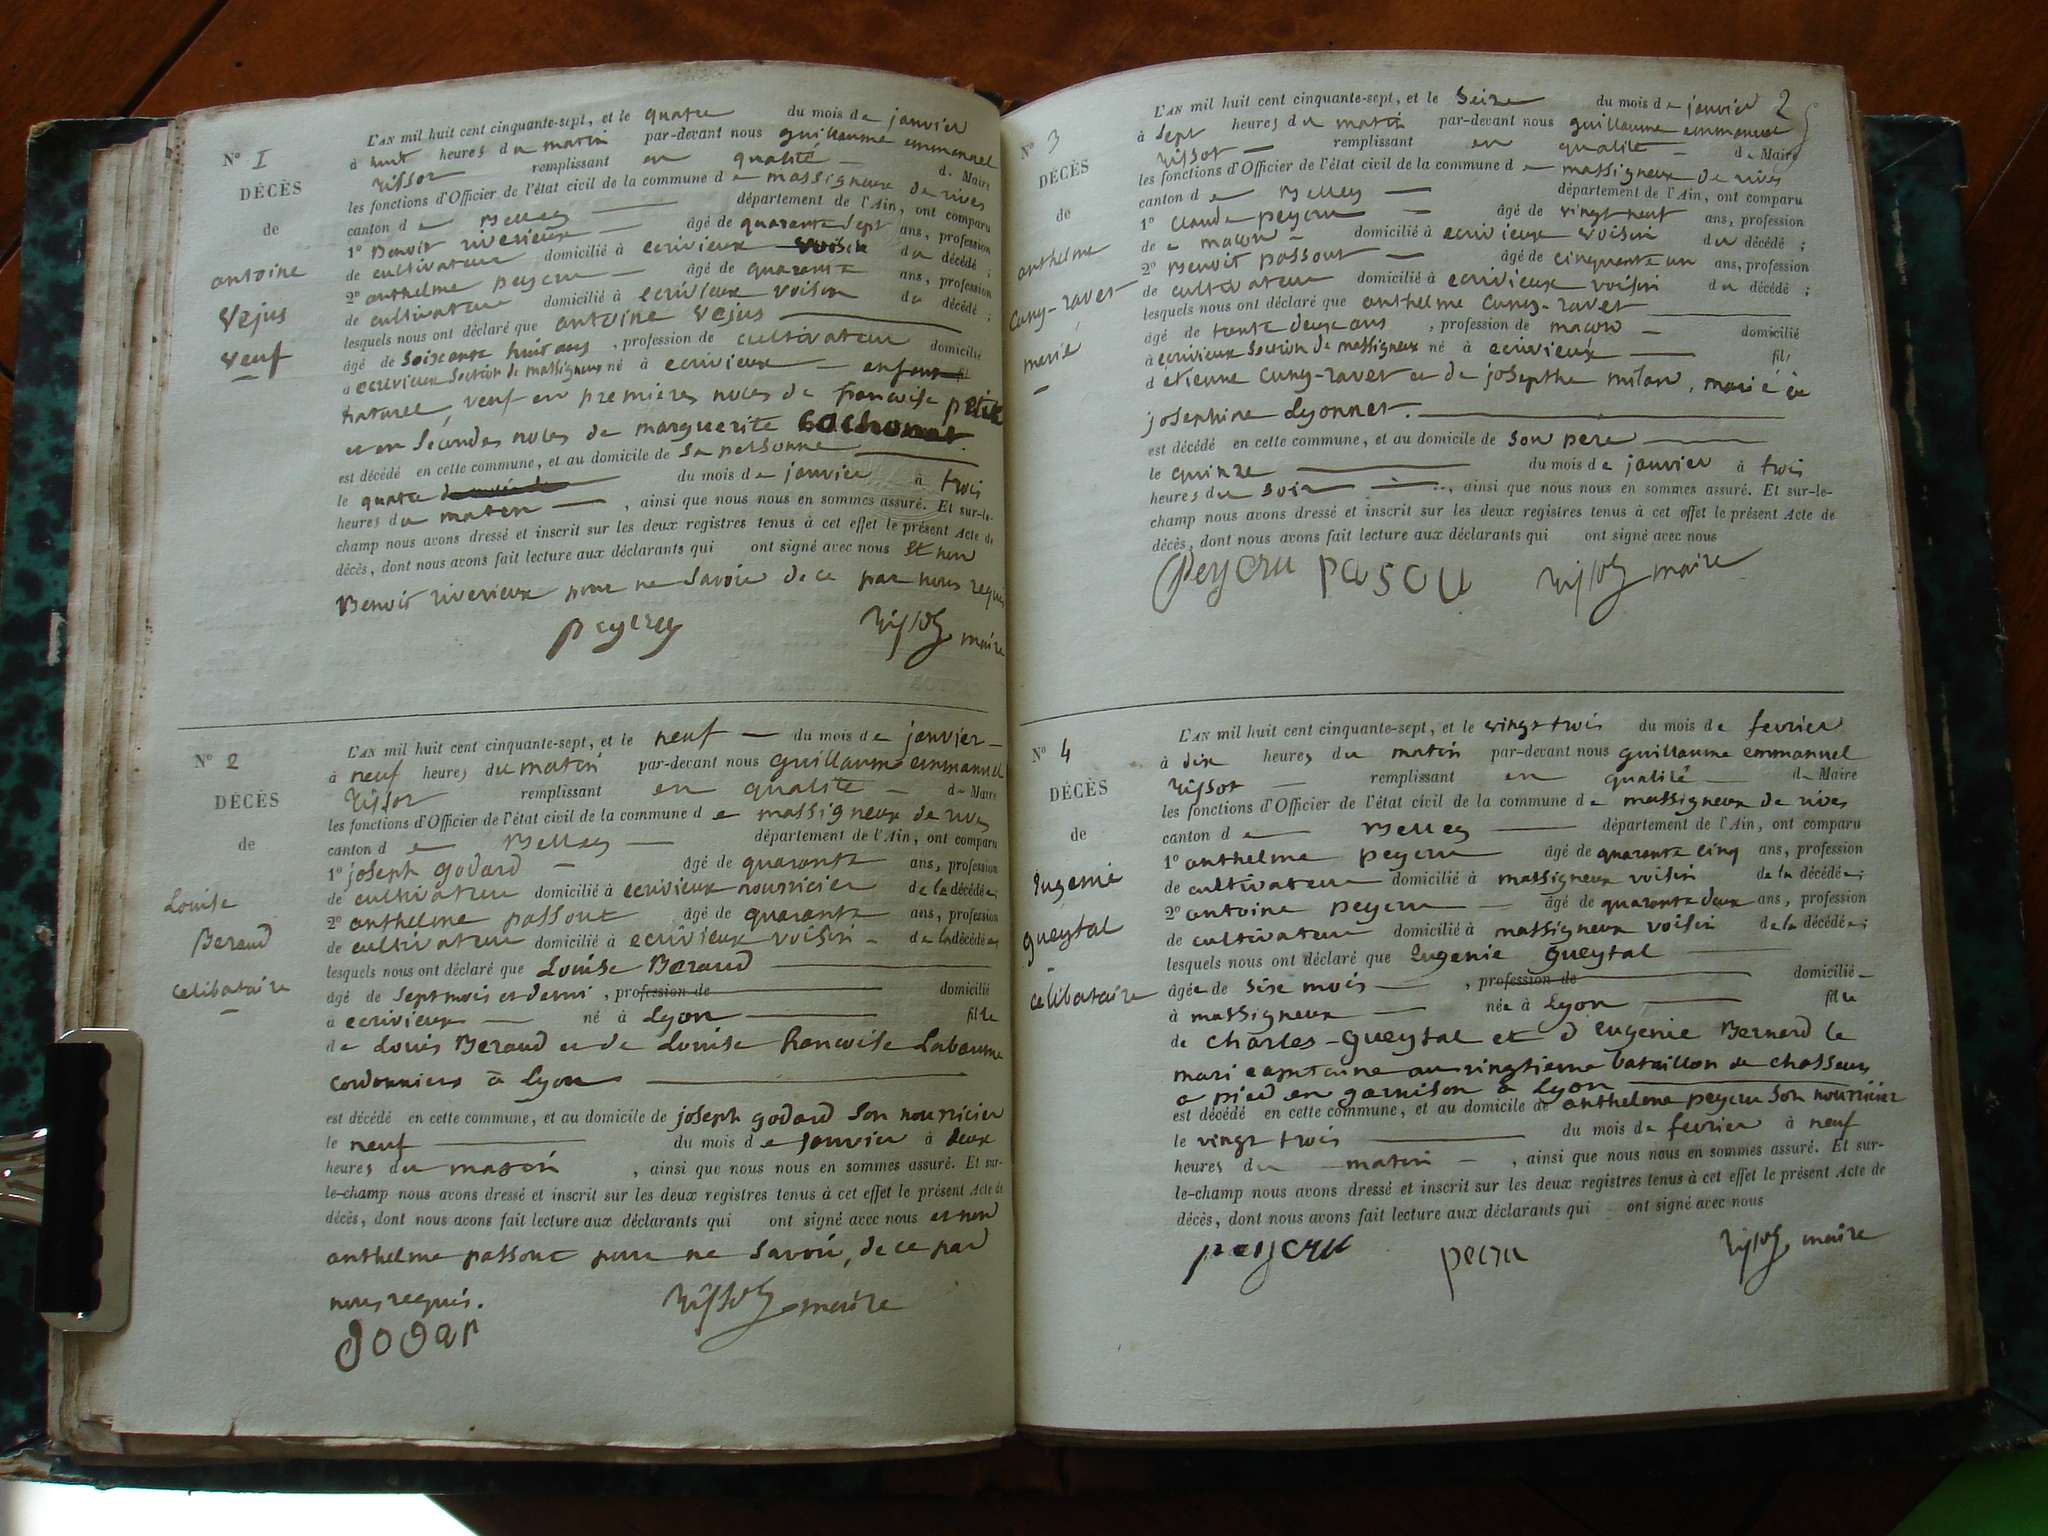 N° 1
DÉCÈS
de
antoine
Vejus
veuf
L'AN mil huit cent cinquante-sept, et le quatre du mois de janvier
à huit heures du matin par-devant nous guillaume emmanuel
remplissant en qualité de Maire
les fonctions d'Officier de l'état civil de la commune de massigneux de rives
canton de Belley département de l'Ain, ont comparu
1° Benoit riverieux âgé de quarente sept ans, profession
de cultivateur domicilié à ecrivieux voisin du décédé ;
2° anthelme peycru âgé de quarante ans, profession
de cultivateur domicilié à ecrivieux voison du décédé ;
lesquels nous ont déclaré que antoine Vejus
âgé de soixante huit ans, profession de cultivateur domicilié
à ecrivieux section de massigneux né à ecrivieux enfant
naturel, veuf en premières noces de francoise petit
et en secondes noces de marguerite
est décédé en cette commune, et au domicile de sa personne
le quatre du mois de janvier à trois
heures du maten, ainsi que nous nous en sommes assuré. Et sur-le-
champ nous avons dressé et inscrit sur les deux registres tenus à cet effet le présent Acte de
décès, dont nous avons fait lecture aux déclarants qui ont signé avec nous et non
Benoit riverieux pour ne savoir de ce par nous requis
peycru maire
N° 2
DÉCÈS
de
Louise
Beraud
celibataire
L'AN mil huit cent cinquante-sept, et le neuf du mois de janvier
à neuf heures du matin par-devant nous guillaume emmanuel
remplissant en qualité de Maire
les fonctions d'Officier de l'état civil de la commune de massigneux de rives
canton de Belley département de l'Ain, ont comparu
1° joseph godard âgé de quarante ans, profession
de cultivateur domicilié à ecrivieux nourricier de la décédée ;
2° anthelme passout âgé de quarante ans, profession
de cultivateur domicilié à ecrivieux voisin de la décédée
lesquels nous ont déclaré que Louise Beraud
âgé de sept mois et demi, profession de domicilié
à ecrivieux né à Lyon fille
de Louis Beraud et de Louise francoise Labaume
cordonniers à Lyon
est décédé en cette commune, et au domicile de joseph godard son nourricier
le neuf du mois de janvier à deux
heures du matin, ainsi que nous nous en sommes assuré. Et sur-
le-champ nous avons dressé et inscrit sur les deux registres tenus à cet effet le présent Acte de
décès, dont nous avons fait lecture aux déclarants qui ont signé avec nous et non
anthelme passout pour ne savoir, de ce par
nous requis.
maire
godar
2
N° 3
DÉCÈS
de
anthelme
cuny-ravet
marié
L'AN mil huit cent cinquante-sept, et le seize du mois de janvier
à sept heures du matin par-devant nous guillaume emmanuel
remplissant en qualité de Maire
les fonctions d'Officier de l'état civil de la commune de massigneux de rives
canton de Belley département de l'Ain, ont comparu
1° claude peycru âgé de vingt neuf ans, profession
de macon domicilié à ecrivieux voisin du décédé ;
2° Benoit passout âgé de cinquante un ans, profession
de cultivateur domicilié à ecrivieux voisin du décédé ;
lesquels nous ont déclaré que anthelme cuny-ravet
âgé de trente deux ans, profession de macon domicilié
à ecrivieux section de massigneux né à ecrivieux fils
d etienne cuny-ravet et de josepthe milan, marié à
josephine Lyonnet.
est décédé en cette commune, et au domicile de son pere
le quinze du mois de janvier à trois
heures du soir, ainsi que nous nous en sommes assuré. Et sur-le-
champ nous avons dressé et inscrit sur les deux registres tenus à cet effet le présent Acte de
décès, dont nous avons fait lecture aux déclarants qui ont signé avec nous
peycru pasou maire
N° 4
DÉCÈS
de
Eugenie
gueytal
celibataire
L'AN mil huit cent cinquante-sept, et le vingt trois du mois de fevrier
à dix heures du matin par-devant nous guillaume emmanuel
remplissant en qualité de Maire
les fonctions d'Officier de l'état civil de la commune de massigneux de rives
canton de Belley département de l'Ain, ont comparu
1° anthelme peycru âgé de quarante cinq ans, profession
de cultivateur domicilié à massigneux voisin de la décédée ;
2° antoine peycru âgé de quarante deux ans, profession
de cultivateur domicilié à massigneux voisin de la décédée ;
lesquels nous ont déclaré que Eugenie gueytal
âgée de sixe mois, profession de domicilié
à massigneux née à Lyon fille
de charles gueytal et d Eugenie Bernard le
mari capitaine au vingtieme bataillon de chasseurs
a pied en garnison a Lyon
est décédé en cette commune, et au domicile de anthelme peycru son nourricier
le vingt trois du mois de fevrier à neuf
heures du matin, ainsi que nous nous en sommes assuré. Et sur-
le-champ nous avons dressé et inscrit sur les deux registres tenus à cet effet le présent Acte de
décès, dont nous avons fait lecture aux déclarants qui ont signé avec nous
peycru pecru maire